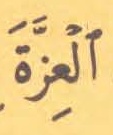 ٱلْعِزَّةَ